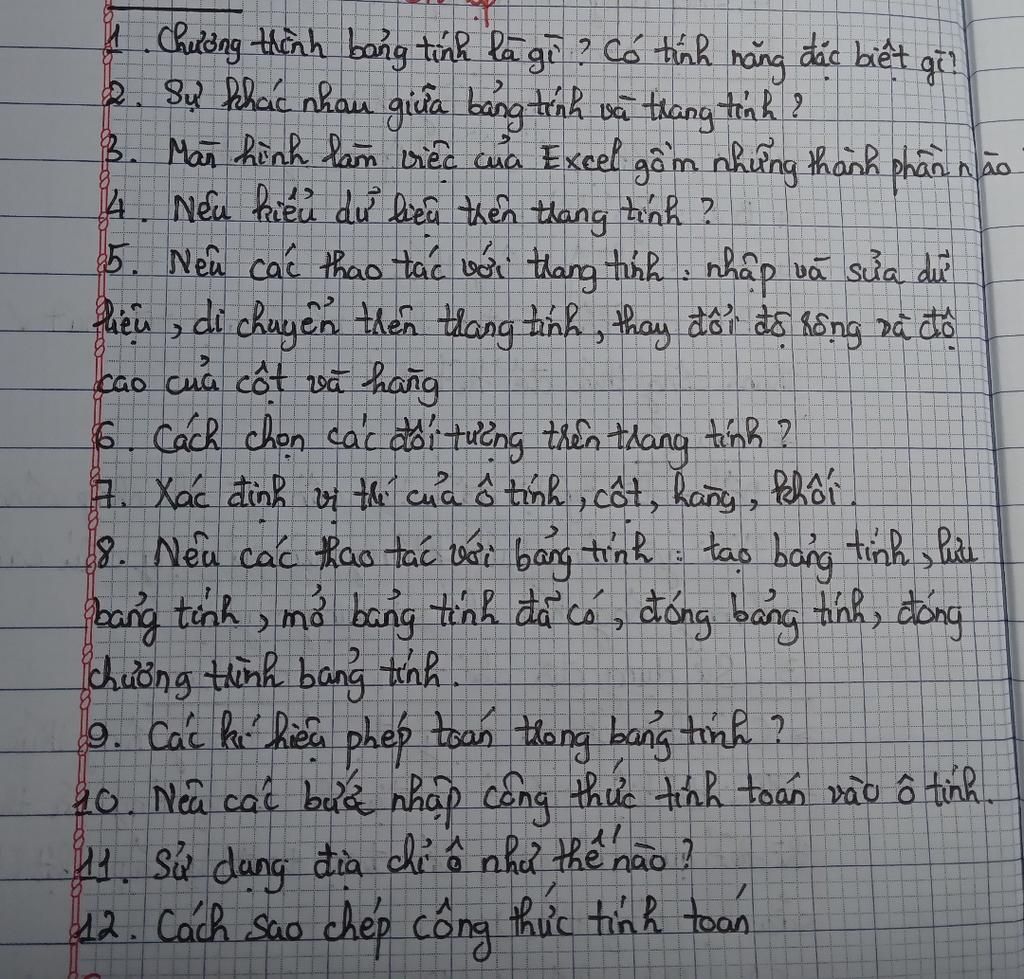 1. Chương trình bảng tính là gì? Có tính năng đặc biệt gì?
2. Sự khác nhau giữa bảng tính và trang tính?
3. Màn hình làm việc của Excel gồm những thành phần nào
4. Nêu kiểu dữ liệu trên trang tính?
5. Nêu các thao tác với trang tính: nhập và sửa dữ
liệu, di chuyển trên trang tính, thay đổi độ rộng và độ
cao của cột và hàng
6. Cách chọn các đối tượng trên trang tính?
7. Xác định vị trí của ô tính, cột, hàng, khối.
8. Nêu các thao tác với bảng tính: tạo bảng tính, lưu
bảng tính, mở bảng tính đã có, đóng bảng tính, đóng
chương trình bảng tính.
9. Các kí hiệu phép toán trong bảng tính?
10. Nêu các bước nhập công thức tính toán vào ô tính.
11. Sử dụng địa chỉ ô như thế nào?
12. Cách sao chép công thức tính toán